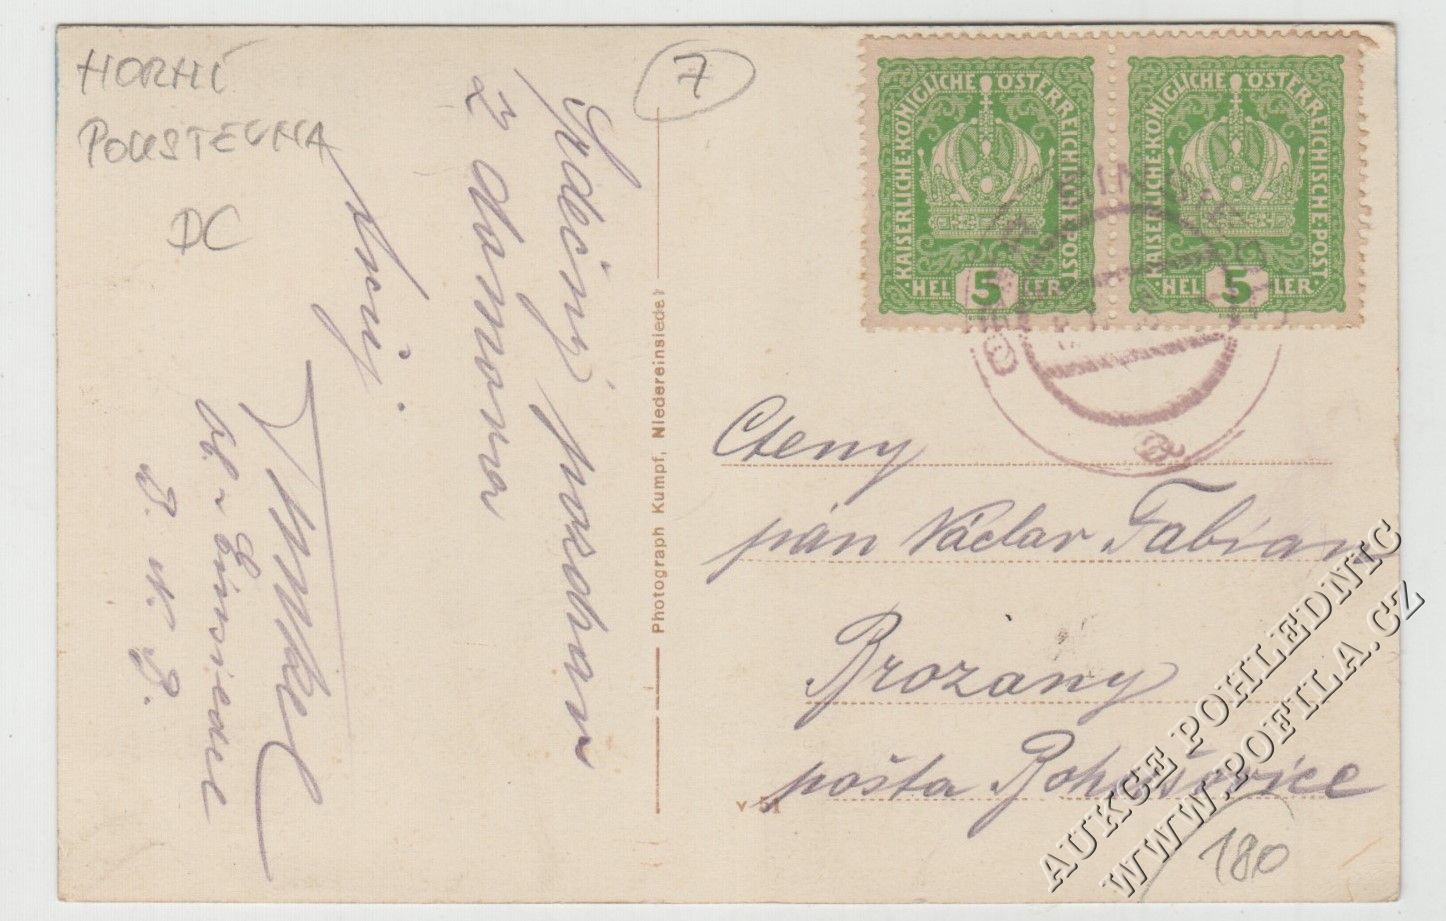 HORNÍ
POUSTEVNA
DC
7
KAISERLICHE·KÖNIGLICHE ÖSTERREICHISCHE·POST
5
HELLER
KAISERLICHE·KÖNIGLICHE ÖSTERREICHISCHE·POST
5
HELLER
a
Srdečný pozdrav
z domova
Photograph Kumpf, Niedereinsiedel
v 51
Cteny
pán Václav Fabian
Brozany
pošta Bohušovice
180
AUKCE POHLEDNIC
WWW.POFILA.CZ